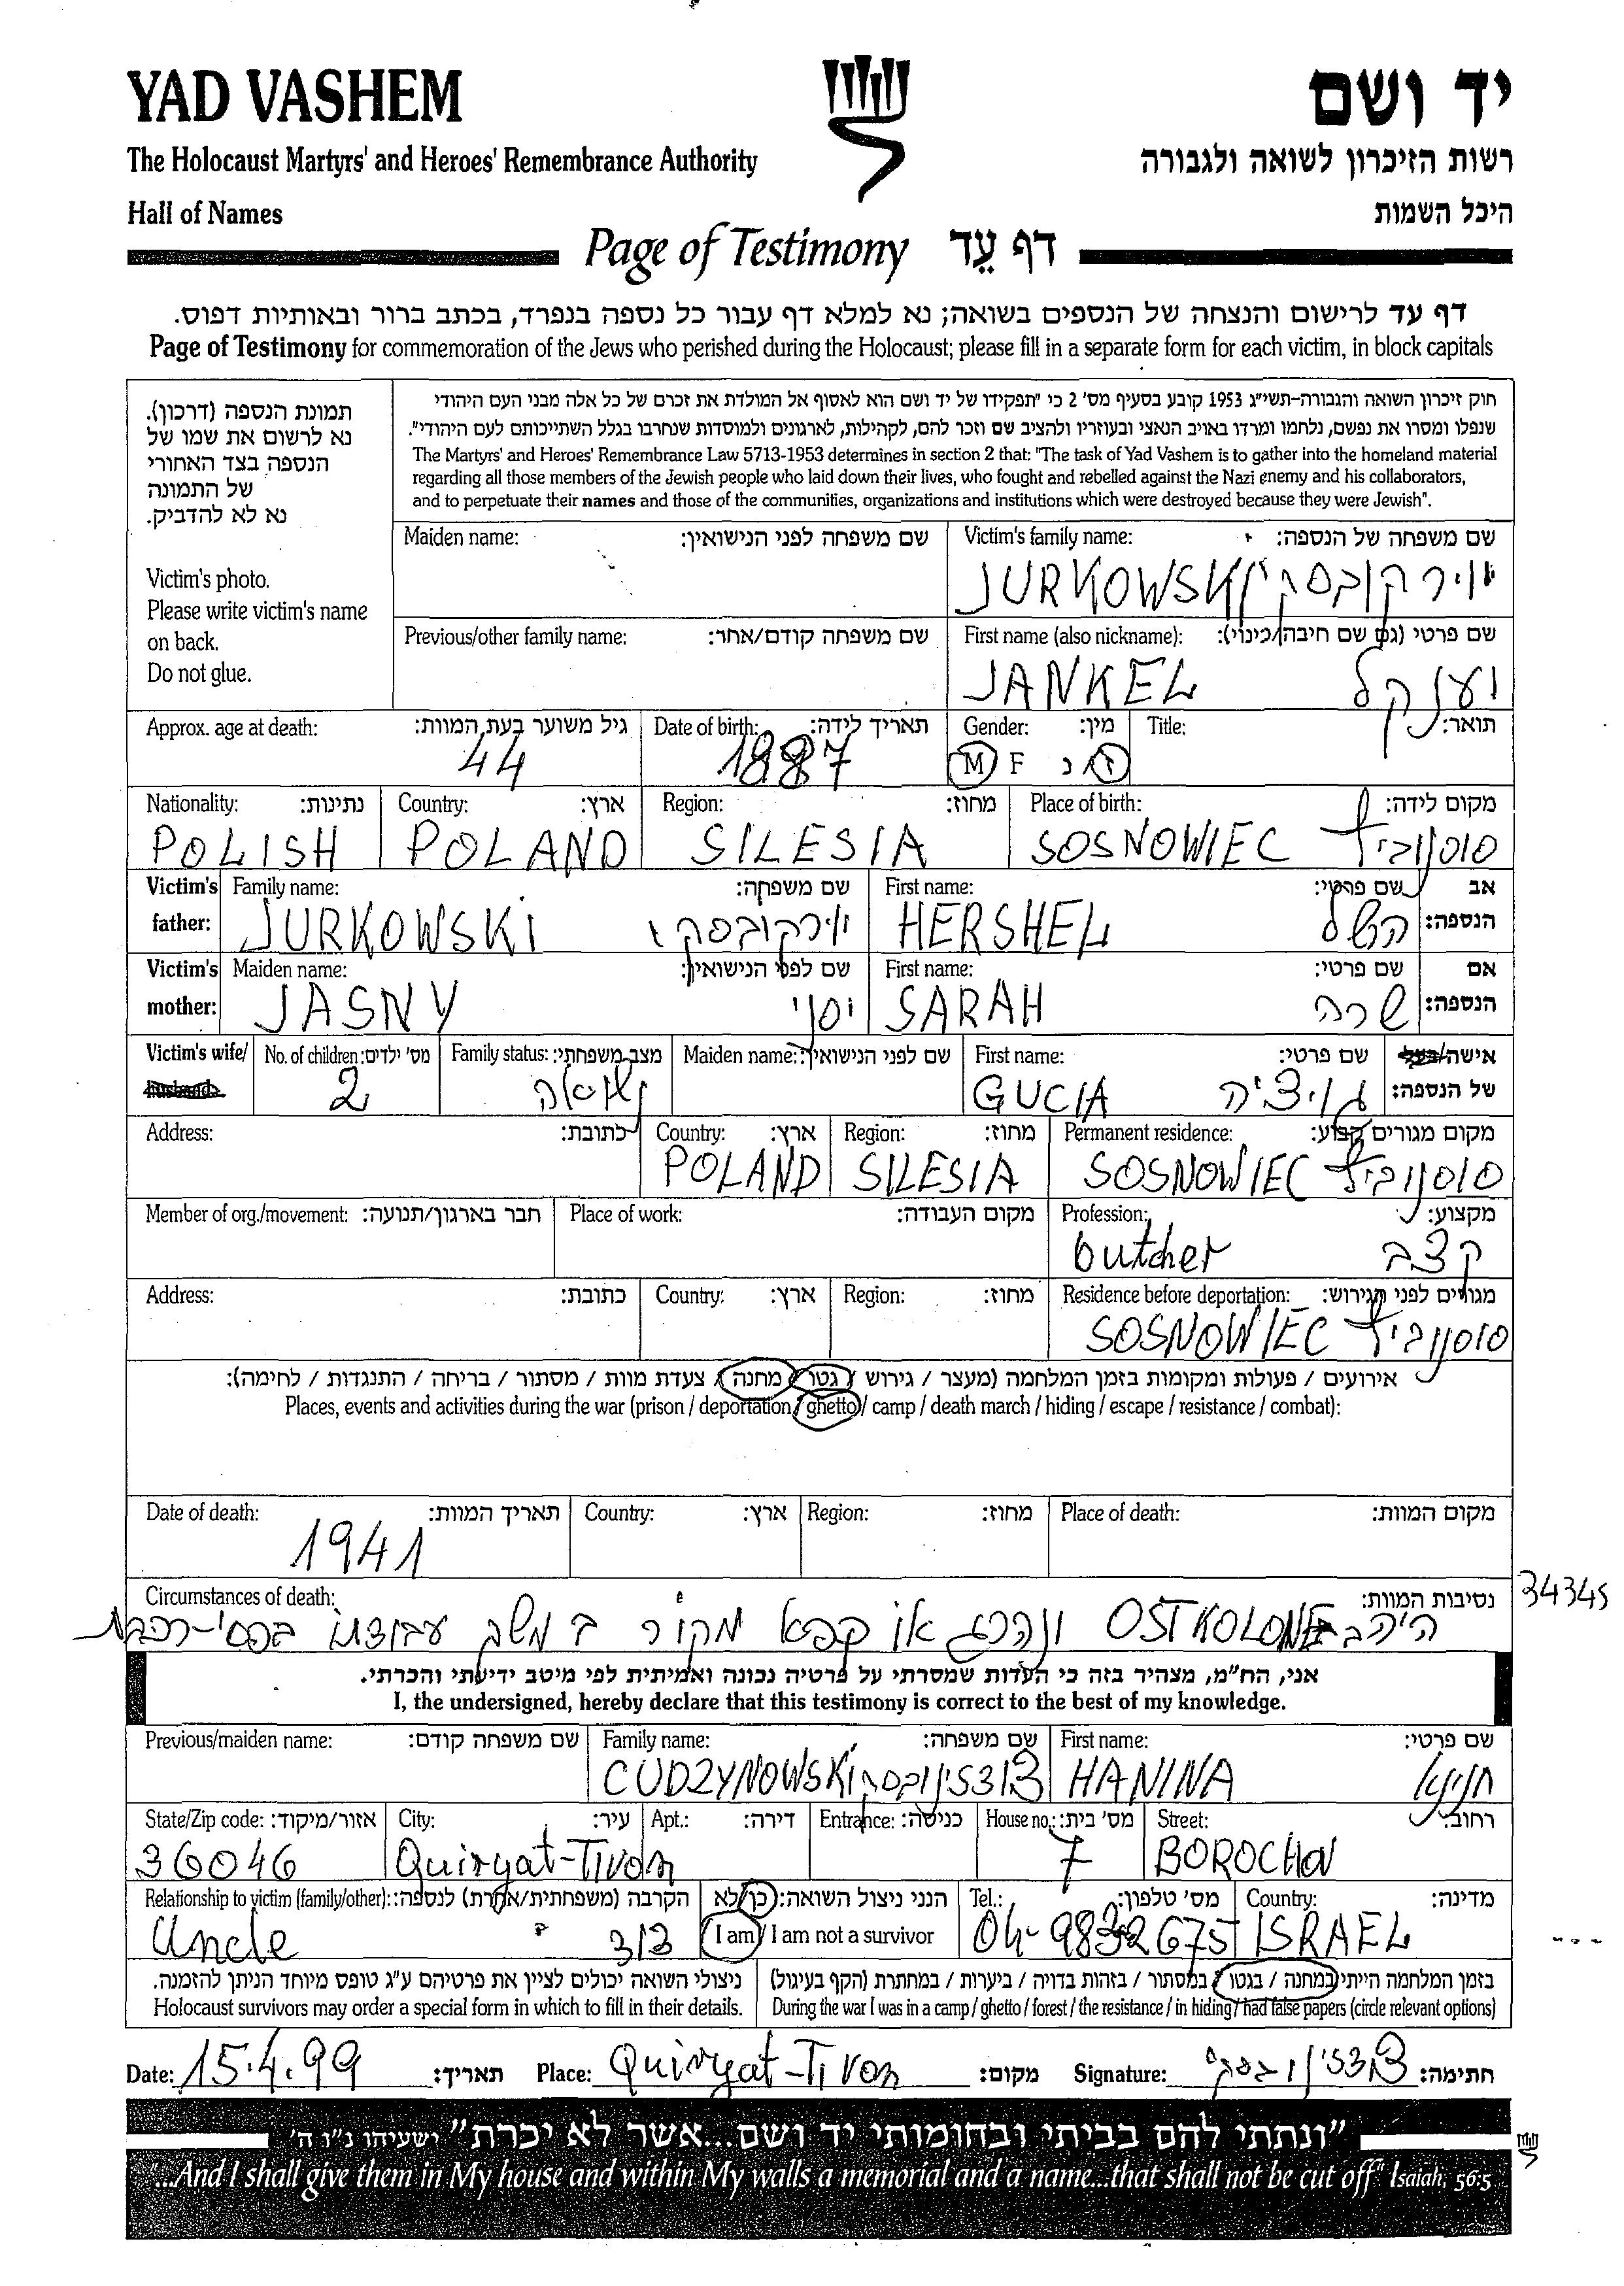 YAD VASHEM
יד ושם
The Holocaust Martyrs' and Heroes' Remembrance Authority
רשות הזיכרון לשואה ולגבורה
Hall of Names
היכל השמות
Page of Testimony דף עֵד
דף עד לרישום והנצחה של הנספים בשואה; נא למלא דף עבור כל נספה בנפרד, בכתב ברור ובאותיות דפוס.
Page of Testimony for commemoration of the Jews who perished during the Holocaust; please fill in a separate form for each victim, in block capitals
תמונת הנספה (דרכון).
נא לרשום את שמו של
הנספה בצד האחורי
של התמונה
נא לא להדביק.
Victim's photo.
Please write victim's name
on back.
Do not glue.
חוק זיכרון השואה והגבורה-תשי"ג 1953 קובע בסעיף מס' 2 כי "תפקידו של יד ושם הוא לאסוף אל המולדת את זכרם של כל אלה מבני העם היהודי
שנפלו ומסרו את נפשם, נלחמו ומרדו באויב הנאצי ובעוזריו ולהציב שם וזכר להם, לקהילות, לארגונים ולמוסדות שנחרבו בגלל השתייכותם לעם היהודי".
The Martyrs' and Heroes' Remembrance Law 5713-1953 determines in section 2 that: "The task of Yad Vashem is to gather into the homeland material
regarding all those members of the Jewish people who laid down their lives, who fought and rebelled against the Nazi enemy and his collaborators,
and to perpetuate their names and those of the communities, organizations and institutions which were destroyed because they were Jewish".
Maiden name: שם משפחה לפני הנישואין: Victim's family name: שם משפחה של הנספה:
JURKOWSKI יוירקובסקי
Previous/other family name: שם משפחה קודם/אחר: First name (also nickname): שם פרטי (גם שם חיבה/כינוי):
JANKEL יענקל
Approx. age at death: גיל משוער בעת המוות: Date of birth: תאריך לידה: Gender: מין: Title: תואר:
44 1887 M F ז נ
Nationality: נתינות: Country: ארץ: Region: מחוז: Place of birth: מקום לידה:
POLISH POLAND SILESIA SOSNOWIEC סוסנוביץ
Victim's father: Family name: שם משפחה: First name: שם פרטי: אב הנספה:
JURKOWSKI יוירקובסקי HERSHEL הרשל
Victim's mother: Maiden name: שם לפני הנישואין: First name: שם פרטי: אם הנספה:
JASNY יסני SARAH שרה
Victim's wife/husband No. of children: מס' ילדים: Family status: מצב משפחתי: Maiden name: שם לפני הנישואין: First name: שם פרטי: אישה/בעל של הנספה:
2 נשוי GUCIA גוציה
Address: כתובת: Country: ארץ: Region: מחוז: Permanent residence: מקום מגורים קבוע:
POLAND SILESIA SOSNOWIEC סוסנוביץ
Member of org./movement: חבר בארגון/תנועה: Place of work: מקום העבודה: Profession: מקצוע:
butcher קצב
Address: כתובת: Country: ארץ: Region: מחוז: Residence before deportation: מגורים לפני הגירוש:
SOSNOWIEC סוסנוביץ
אירועים / פעולות ומקומות בזמן המלחמה (מעצר / גירוש / גטו / מחנה / צעדת מוות / מסתור / בריחה / התנגדות / לחימה):
Places, events and activities during the war (prison / deportation / ghetto / camp / death march / hiding / escape / resistance / combat):
Date of death: תאריך המוות: Country: ארץ: Region: מחוז: Place of death: מקום המוות:
1941
Circumstances of death: נסיבות המוות: 34345
היה ב OSTKOLONE ונהרג או קפא מקור
אני, הח"מ, מצהיר בזה כי העדות שמסרתי על פרטיה נכונה ואמיתית לפי מיטב ידיעתי והכרתי.
I, the undersigned, hereby declare that this testimony is correct to the best of my knowledge.
Previous/maiden name: שם משפחה קודם: Family name: שם משפחה: First name: שם פרטי:
CUDZYNOWSKI צודזינובסקי HANINA חנינא
State/Zip code: אזור/מיקוד: City: עיר: Apt.: דירה: Entrance: כניסה: House no.: מס' בית: Street: רחוב:
36046 Quiryat-Tivon 7 BOROCHOV
Relationship to victim (family/other): הקרבה (משפחתית/אחרת) לנספה: הנני ניצול השואה: כן/לא Tel.: מס' טלפון: Country: מדינה:
Uncle דוד I am / I am not a survivor 04-9832675 ISRAEL
ניצולי השואה יכולים לציין את פרטיהם ע"ג טופס מיוחד הניתן להזמנה. בזמן המלחמה הייתי במחנה / בגטו / במסתור / בזהות בדויה / ביערות / במחתרת (הקף בעיגול)
Holocaust survivors may order a special form in which to fill in their details. During the war I was in a camp / ghetto / forest / the resistance / in hiding / had false papers (circle relevant options)
Date: 15.4.99 תאריך: Place: Quiryat-Tivon מקום: Signature: צודזינובסקי חתימה:
"ונתתי להם בביתי ובחומותי יד ושם...אשר לא יכרת" ישעיהו נ"ו ה'
"...And I shall give them in My house and within My walls a memorial and a name...that shall not be cut off" Isaiah, 56:5